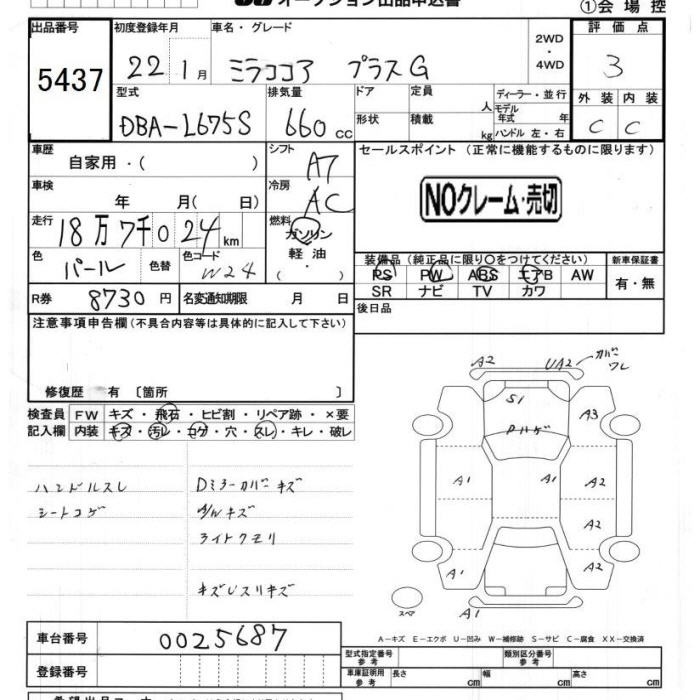 オークション出品申込書
①会場控
出品番号
5437
初度登録年月
22 1月
車名・グレード
ミラココア プラスG
2WD
・
4WD
評価点
3
型式
DBA-L675S
排気量
660 CC
ドア
形状
定員
人
積載
kg
ディーラー・並行
モデル
年式 年
ハンドル 左・右
外装 内装
C C
車歴
自家用・( )
シフト
A7
車検
年 月( 日)
冷房
AC
走行
18万7千024km
燃料
ガソリン
軽油
・
( )
色
パール
色替
色コード
W24
R券
8730円
名変通知期限 月 日
セールスポイント (正常に機能するものに限ります)
NOクレーム・売切
装備品(純正品に限り○をつけてください)
PS PW ABS エアB AW
SR ナビ TV カワ
新車保証書
有・無
後日品
注意事項申告欄(不具合内容等は具体的に記入して下さい)
修復歴 有 〔箇所 〕
検査員
記入欄
FW キズ・飛石・ヒビ割・リペア跡・×要
内装 キズ・汚レ・コゲ・穴・スレ・キレ・破レ
ハンドルスレ
シートコゲ
Dミラーカバーキズ
A/Wキズ
ライトクモリ
キズUスリキズ
A2
UA2
カバー
ワレ
S1
A3
Pハゲ
A1
A1
A2
A2
A1
A2
A1
スペア
A-キズ E-エクボ U-凹み W-補修跡 S-サビ C-腐食 XX-交換済
車台番号
0025687
登録番号
型式指定番号
参考
類別区分番号
参考
車庫証明用
参考
長さ
幅
高さ
希望出品コーナー